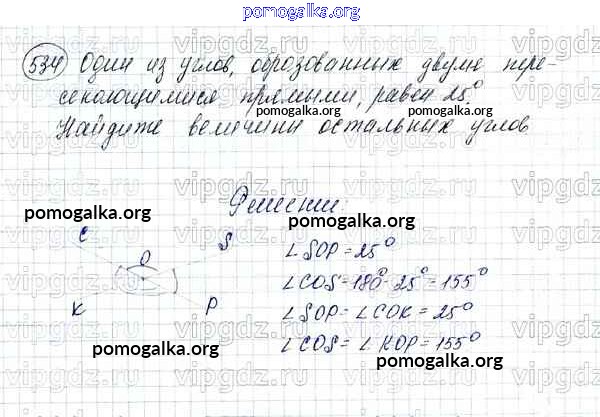 pomogalka.org
534 Один из углов, образованных двумя пере-
секающимися прямыми, равен 25°.
pomogalka.org pomogalka.org
Найдите величины остальных углов
Решение.
pomogalka.org pomogalka.org
C S
O ∠SOP = 25°
∠COS = 180° - 25° = 155°
K P ∠SOP = ∠COK = 25°
pomogalka.org ∠COS = ∠KOP = 155°
pomogalka.org
vipgdz.ru